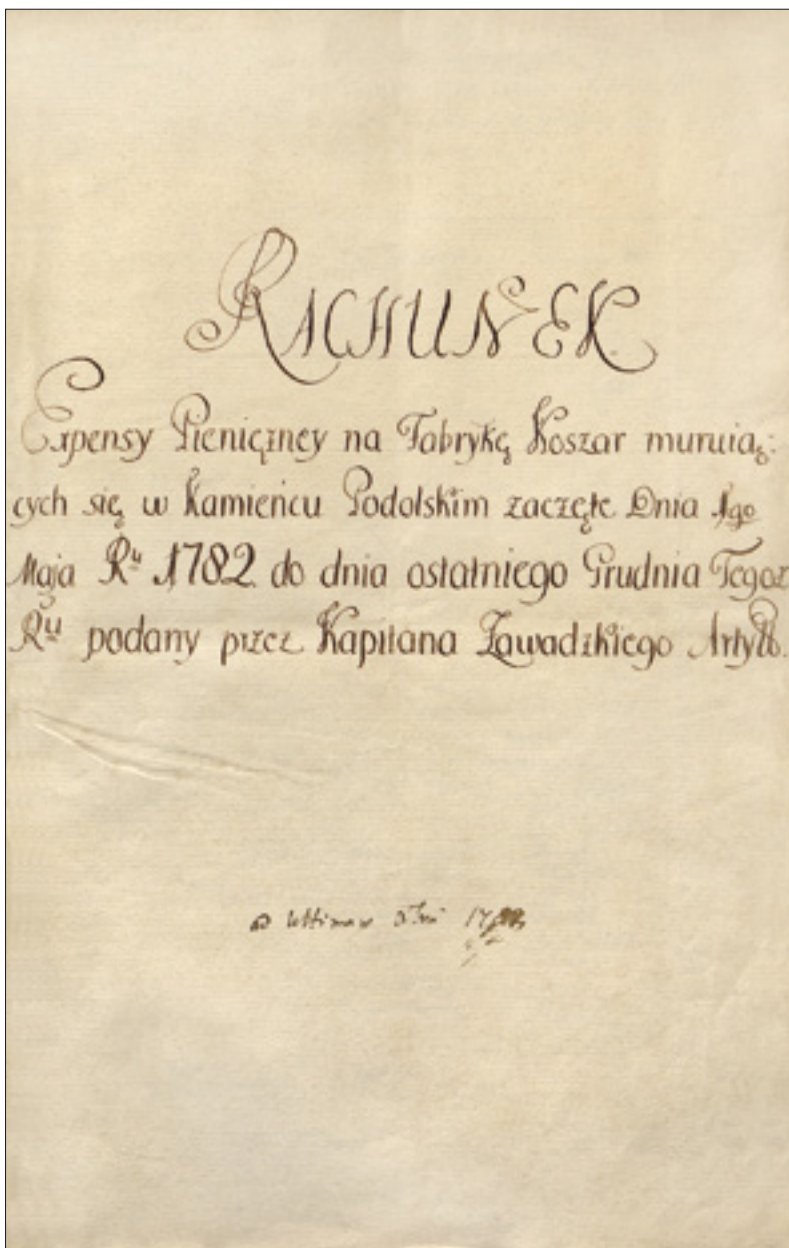 RACHUNEK
Expensy Pieniężney na Fabrykę Koszar muruią:
cych się w Kamieńcu Podolskim zaczęte Dnia 1go
Maja Ru 1782 do dnia ostatniego Grudnia Tegoż
Ru podany przez Kapitana Zawadzkiego Artyll.